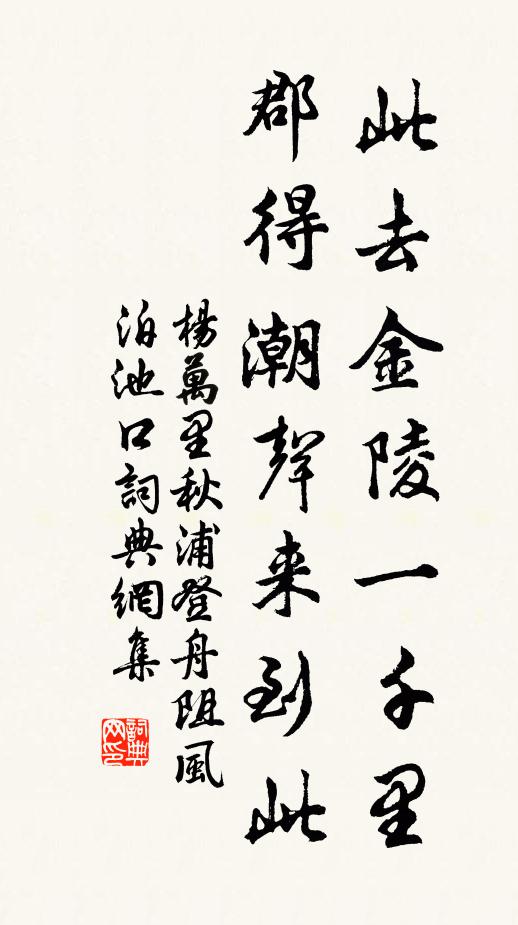 此去金陵一千里
郡得潮聲来到此
楊萬里秋浦登舟阻風
泊池口詞典網集
詞典
网印